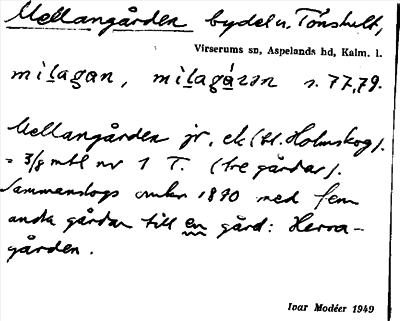 Mellangården bydel u. Tönshult,
Virserums sn, Aspelands hd, Kalm. l.
milagan, milagáran s. 77,79.
Mellangården jr, ek (bl. Holmskog).
= 3/8 mtl nr 1 T. (tre gårdar).
Sammanslogs omkr 1890 med fem
andra gårdar till en gård: Herra-
gården.
Ivar Modéer 1949